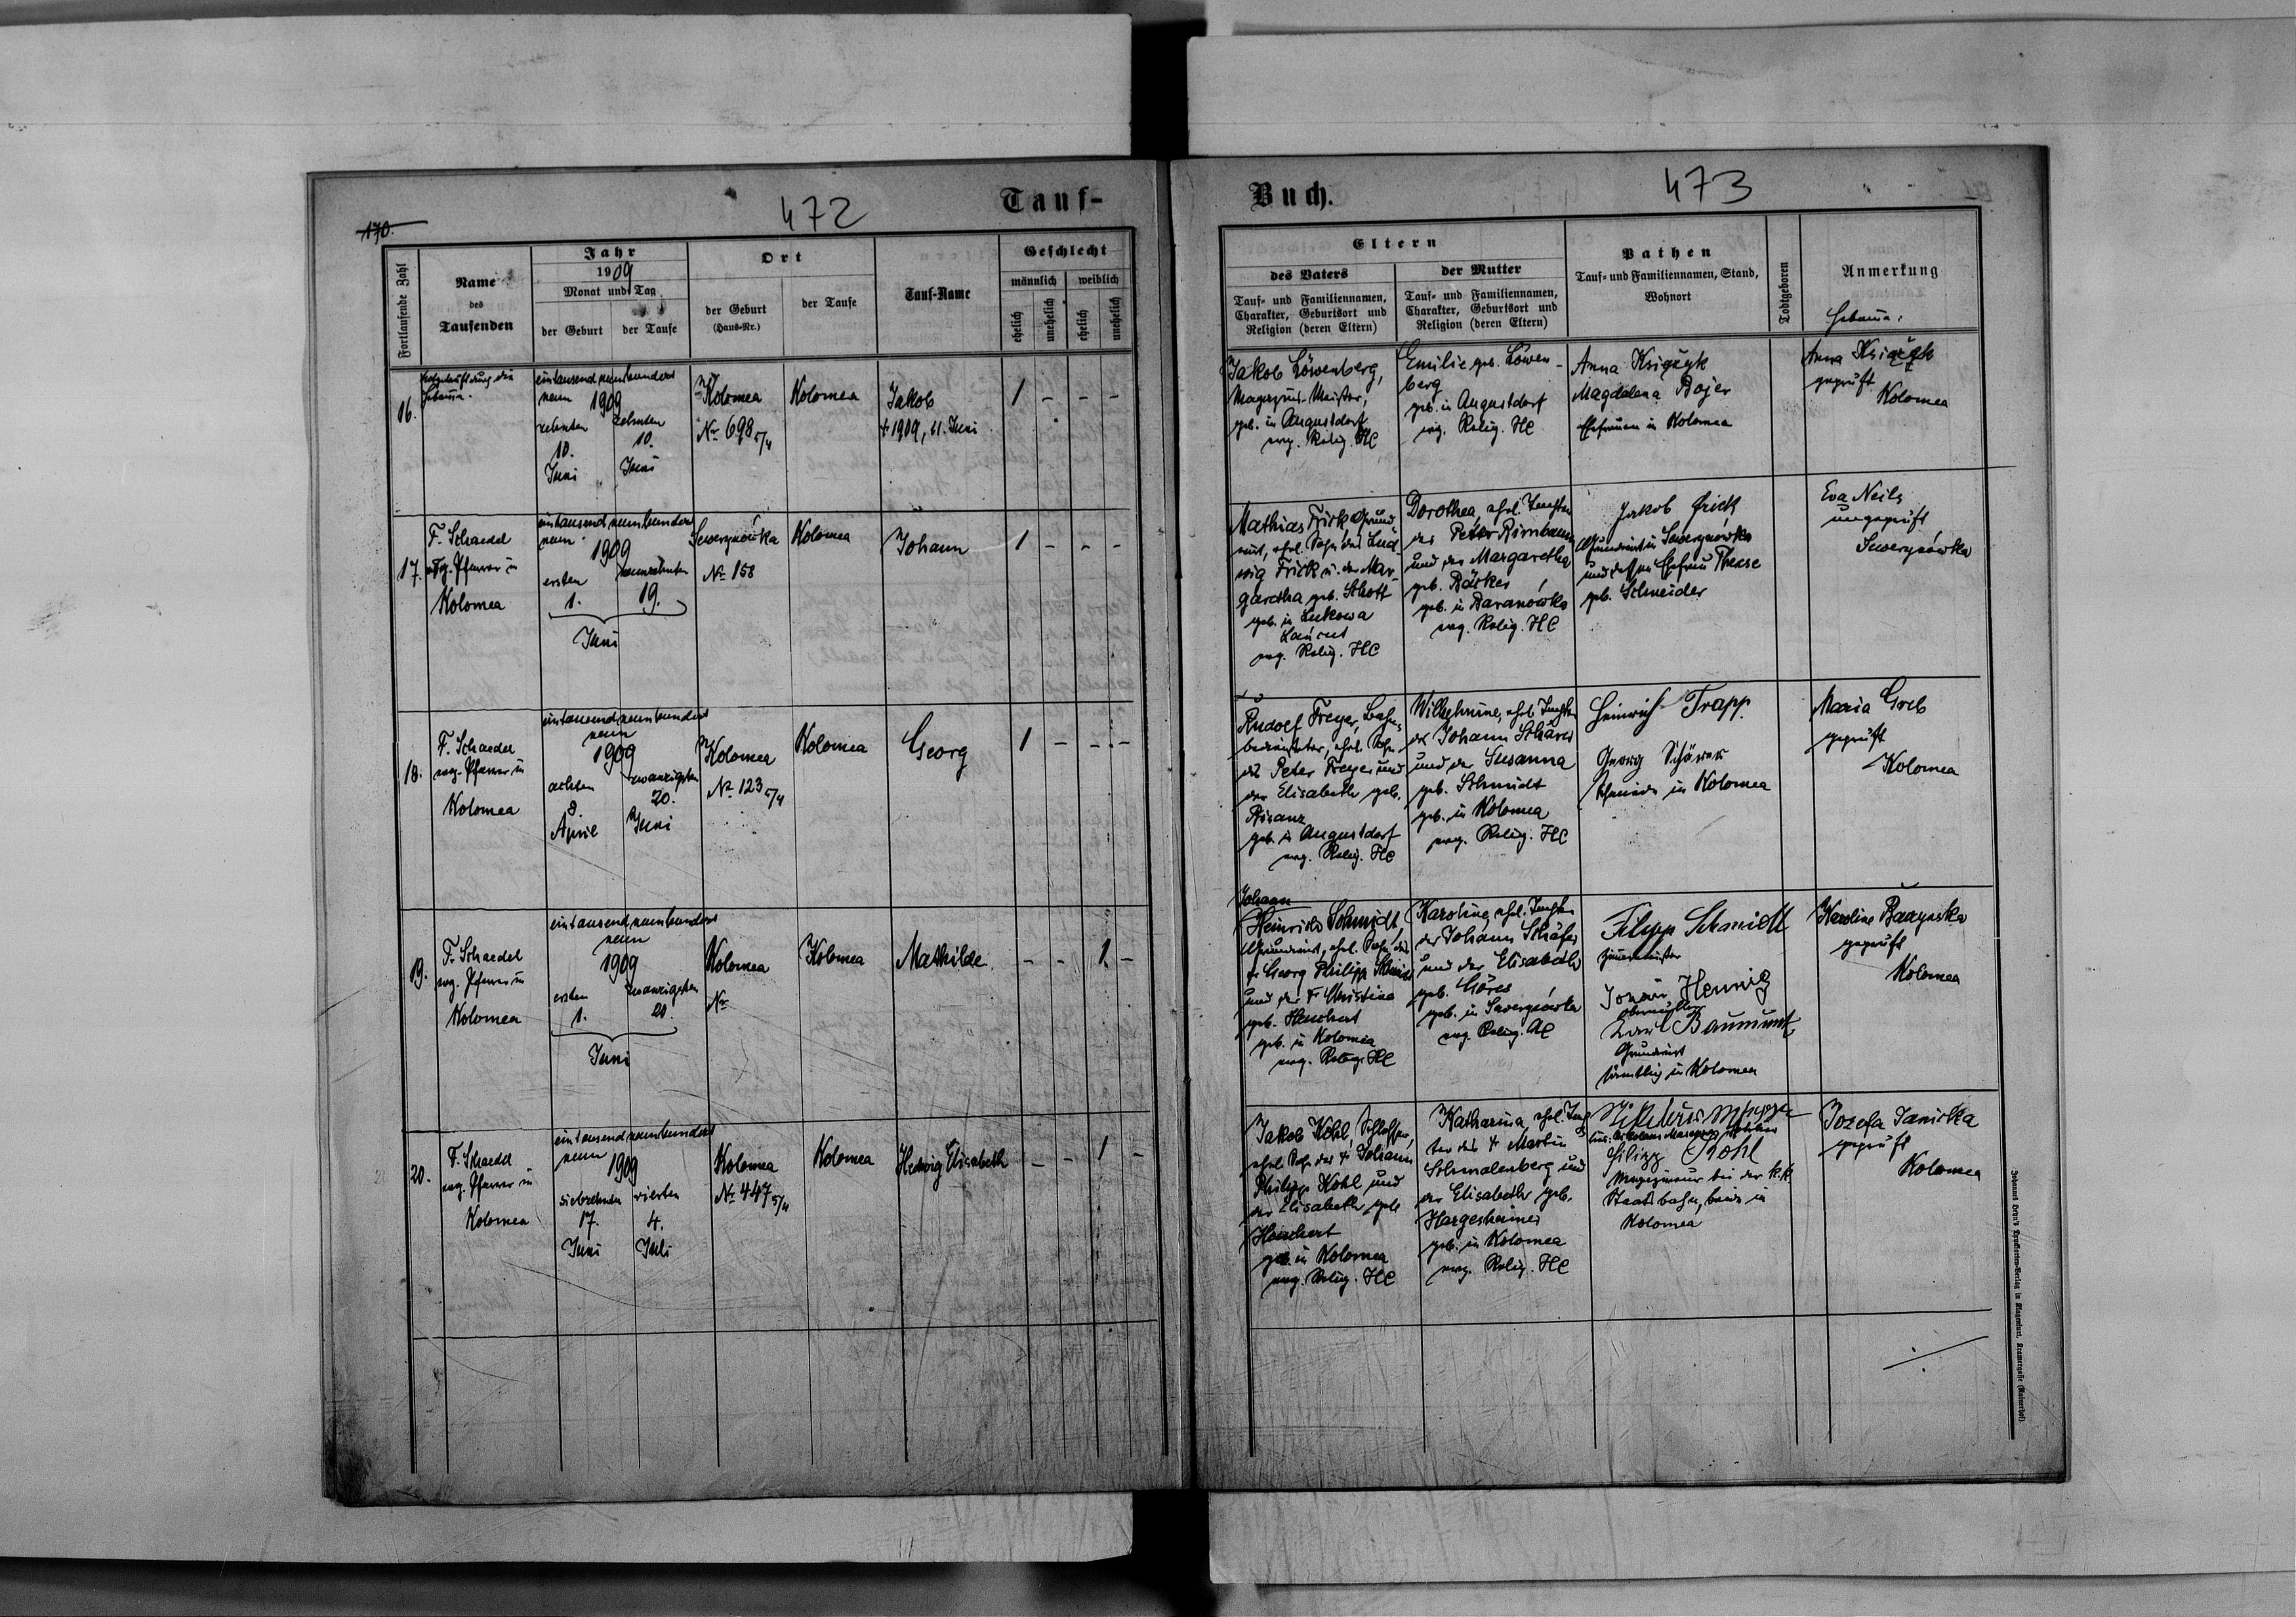 170.
472
Tauf-
Fortlaufende Zahl
Name
des
Taufenden
Jahr
1909
Monat und Tag
der Geburt
der Taufe
Ort
der Geburt
(Haus-Nr.)
der Taufe
Tauf-Name
Geschlecht
männlich
weiblich
ehelich
unehelich
ehelich
unehelich
16.
Nothgetauft durch die
Hebamme.
eintausendneunhundert
neun 1909
zehnten
10.
Juni
zehnten
10.
Juni
Kolomea
Nr 698 5/4
Kolomea
Jakob
+ 1909, 11. Juni
1 - - -
17.
F. Schaedel
evg. Pfarrer in
Kolomea
eintausendneunhundert
neun
1909
ersten
1.
neunzehnten
19.
Juni
Sewerynówka
Nr 158
Kolomea
Johann
1 - - -
18.
F. Schaedel
evg. Pfarrer in
Kolomea
eintausendneunhundert
neun
1909
achten
8.
April
zwanzigsten
20.
Juni
Kolomea
Nr 123 5/4
Kolomea
Georg
1 - - -
19.
F. Schaedel
evg. Pfarrer in
Kolomea
eintausendneunhundert
neun
1909
ersten
1.
zwanzigsten
20.
Juni
Kolomea
Nr
Kolomea
Mathilde
- - 1 -
20.
F. Schaedel
evg. Pfarrer in
Kolomea
eintausendneunhundert
neun
1909
siebzehnten
17.
Juni
vierten
4.
Juli
Kolomea
Nr 447 5/4
Kolomea
Hedwig Elisabeth
- - 1 -
Buch.
473
Eltern
des Vaters
Tauf- und Familiennamen,
Charakter, Geburtsort und
Religion (deren Eltern)
der Mutter
Tauf- und Familiennamen,
Charakter, Geburtsort und
Religion (deren Eltern)
Pathen
Tauf- und Familiennamen, Stand,
Wohnort
Todtgeboren
Anmerkung
Hebamme:
Jakob Löwenberg,
Magazins-Meister,
geb. in Augustdorf
evg. Relig. HC
Emilie geb. Löwen-
berg
geb. in Augustdorf
evg. Relig. HC
Anna Książyk
Magdalena Bojer
Ehefrauen in Kolomea
Anna Książyk
geprüft
Kolomea
Mathias Frick, Grund-
wirt, ehel. Sohn des Lud-
wig Frick u. der Mar-
garetha geb. Schott
geb. in Lukowa
Łańcut
evg. Relig. HC
Dorothea, ehel. Tochter
des Peter Birnbaum
und der Margaretha
geb. Bäcker
geb. in Baranówka
evg. Relig. HC
Jakob Frick
Grundwirt in Sewerynówka
und dessen Ehefrau Therese
geb. Schneider
Eva Neils
ungeprüft
Sewerynówka
Rudolf Freyer, Bahn-
bediensteter, ehel. Sohn
des Peter Freyer und
der Elisabeth geb.
Bisanz
geb. in Augustdorf
evg. Relig. HC
Wilhelmine, ehel. Tochter
des Johann Schärer
und der Susanna
geb. Schmidt
geb. in Kolomea
evg. Relig. HC
Heinrich Trapp
Georg Schärer
Schmiede in Kolomea
Maria Greb
geprüft
Kolomea
Johann
Heinrich Schmidt
Grundwirt, ehel. Sohn des
+ Georg Philipp Schmidt
und der + Christina
geb. Heuchert
geb. in Kolomea
evg. Relig. HC
Karoline, ehel. Tochter
des Johann Schäfer
und der Elisabeth
geb. Göres
geb. in Sewerynówka
evg. Relig. AC
Filipp Schmidt
Zimmermeister
Johann Hennig
Obermüller
Baumunk
Grundwirt
sämmtlich in Kolomea
Karoline Baczynska
geprüft
Kolomea
Jakob Köhl, Schlosser,
ehel. Sohn des + Johann
Philipp Köhl und
der Elisabeth geb.
Heuchert
geb. in Kolomea
evg. Relig. HC
Katharina, ehel. Toch-
ter des + Martin
Schmalenberg und
der Elisabeth geb.
Hargesheimer
geb. in Kolomea
evg. Relig. HC
Filipp Köhl
Magazineur bei der k.k.
Staatsbahn, beide in
Kolomea
Jozefa Janicka
geprüft
Kolomea
Johannes Heyn's Drucksorten-Verlag in Klagenfurt, Kramergasse (Kaiserhof).